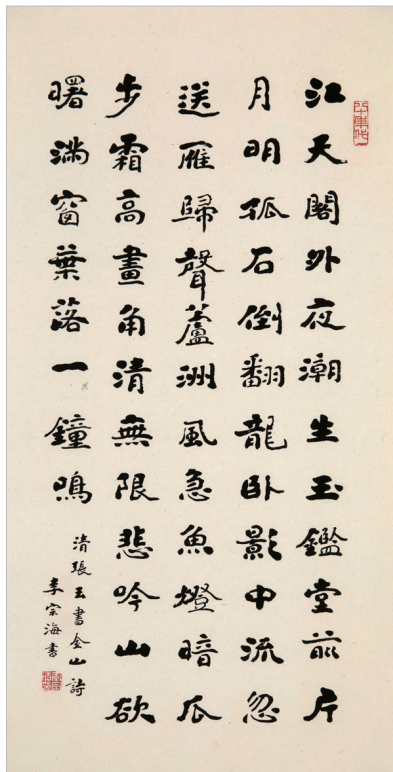 江天閣外夜潮生玉鑑堂前片
月明孤石倒翻龍臥影中流忽
送雁歸聲蘆洲風急魚燈暗瓜
步霜高畫角清無限悲吟山欲
曙滿窗葉落一鐘鳴
清張玉書金山詩
李宗海書